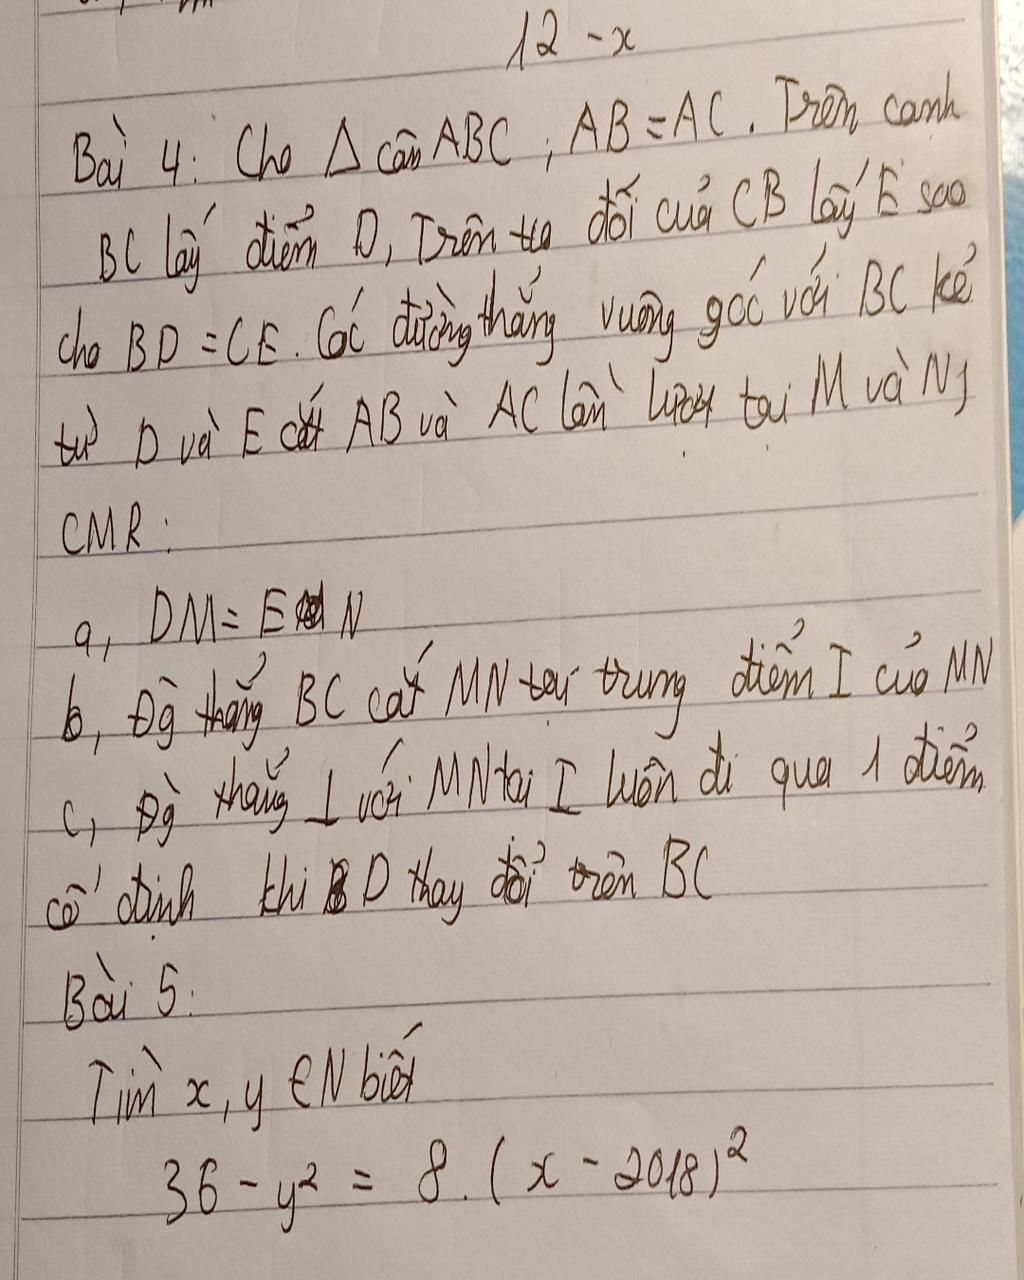 12 - x
Bài 4: Cho Δ cân ABC, AB = AC. Trên canh
BC lấy điểm D, Trên tia đối của CB lấy E sao
cho BD = CE. Các đường thẳng vuông góc với BC kẻ
từ D và E cắt AB và AC lần lượt tại M và N,
CMR:
a, DM = E N
b, Đg thẳng BC cắt MN tại trung điểm I của MN
c, Đg thẳng ⊥ với MN tại I luôn đi qua 1 điểm
cố định khi D thay đổi trên BC
Bài 5:
Tìm x, y ∈ N biết
36 - y² = 8. (x - 2018)²